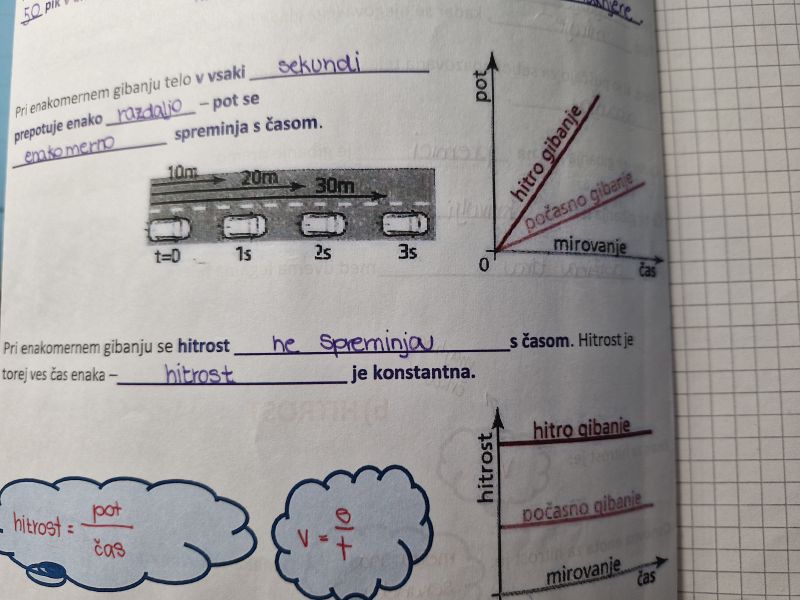 50
Pri enakomernem gibanju telo v vsaki sekundi
prepotuje enako razdaljo – pot se
enakomerno spreminja s časom.
10m 20m 30m
t=0 1s 2s 3s
pot
hitro gibanje
počasno gibanje
mirovanje
0
čas
Pri enakomernem gibanju se hitrost ne spreminja s časom. Hitrost je
torej ves čas enaka – hitrost je konstantna.
hitrost = pot
čas
v = s
t
hitrost
hitro gibanje
počasno gibanje
mirovanje
čas